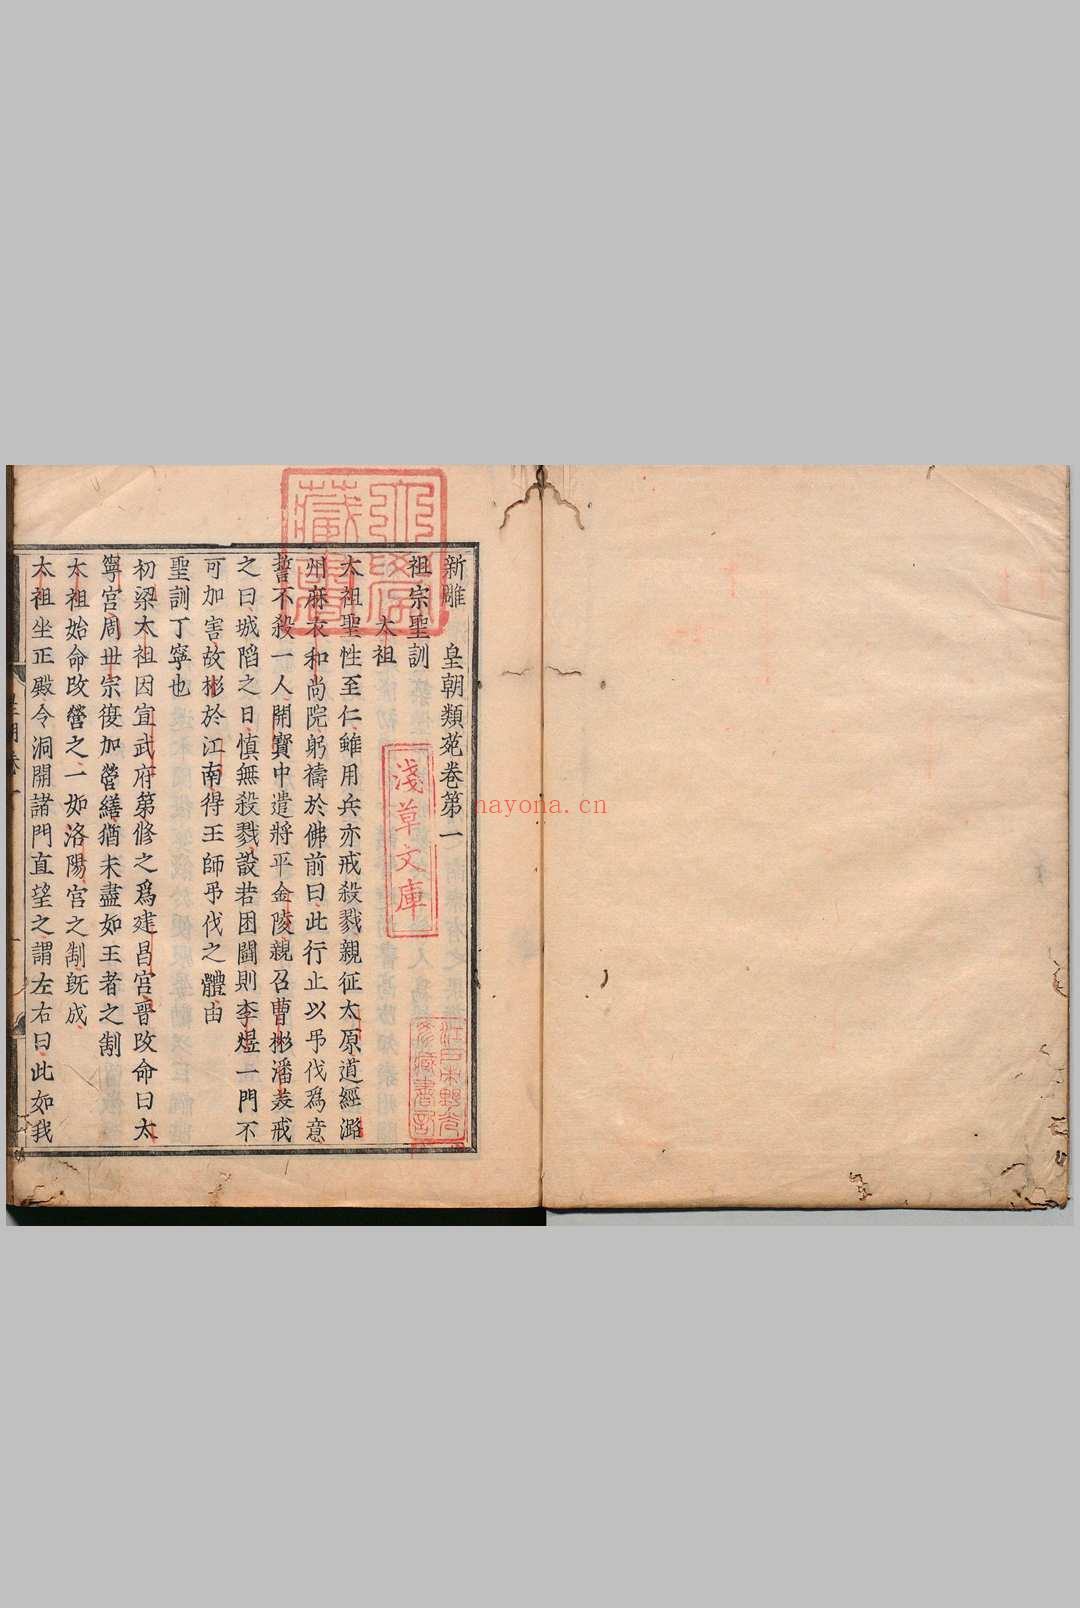 新雕　皇朝類苑卷第一
祖宗聖訓
太祖
太祖聖性至仁雖用兵亦戒殺戮親征太原道經潞
州麻衣和尚院躬禱於佛前曰此行止以弔伐爲意
誓不殺一人開寳中遣將平金陵親召曹彬潘美戒
之曰城陷之日慎無殺戮設若困鬬則李煜一門不
可加害故彬於江南得王師弔伐之體由
聖訓丁寧也
初梁太祖因宣武府第修之爲建昌宫晉改命曰太
寧宫周世宗復加營繕猶未盡如王者之制
太祖始命改營之一如洛陽宫之制既成
太祖坐正殿令洞開諸門直望之謂左右曰此如我
淺草文庫
nayona.cn